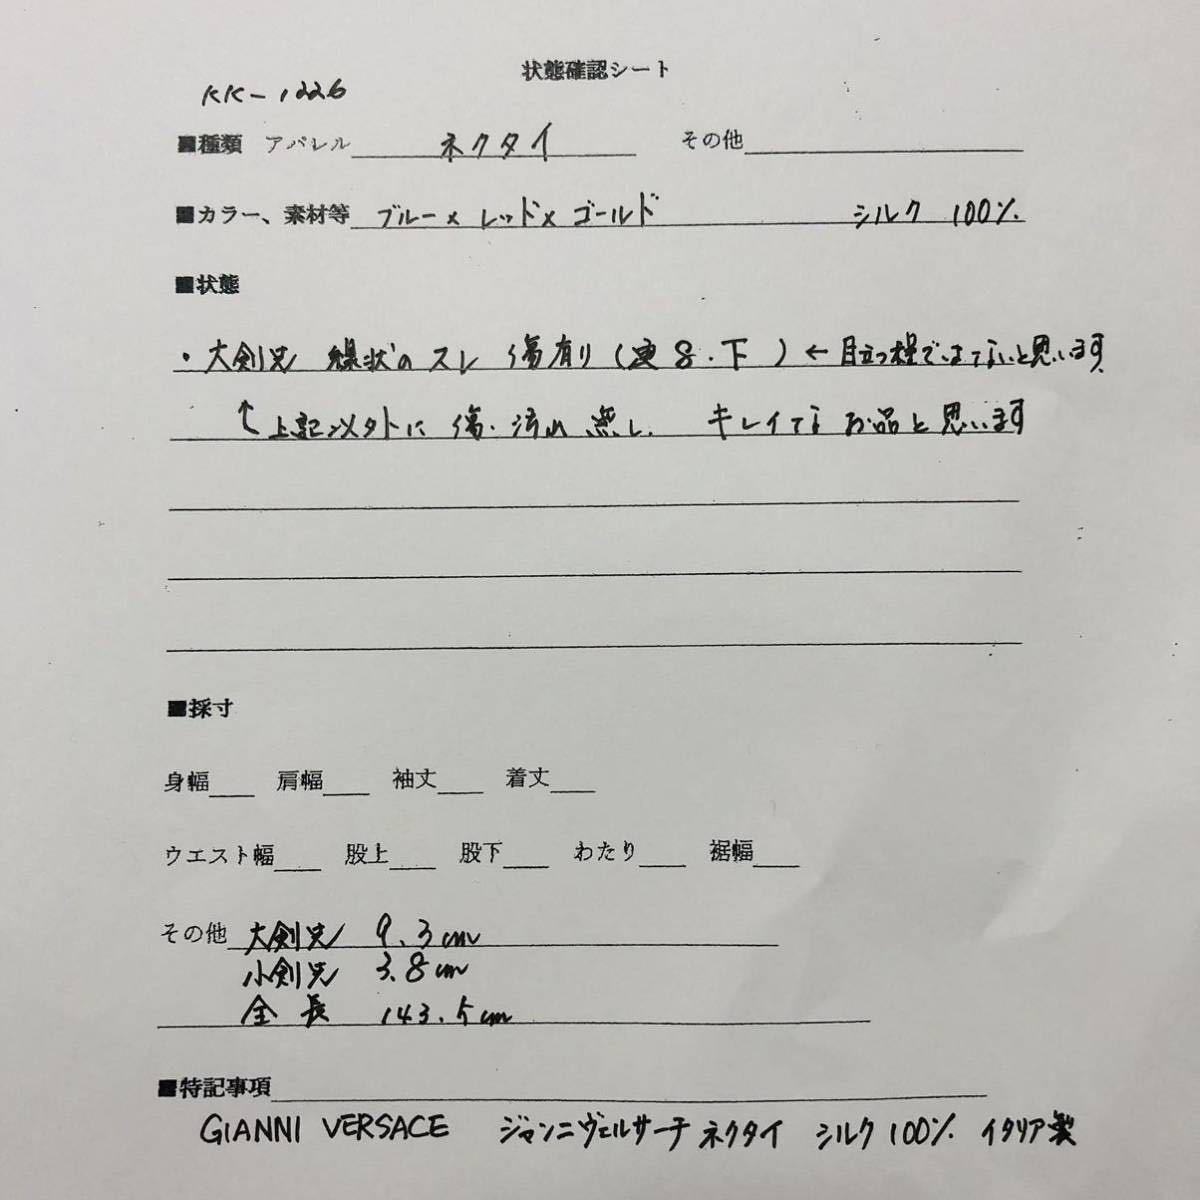 状態確認シート
KK-1226
■種類 アパレル ネクタイ その他
■カラー、素材等 ブルー×レッド×ゴールド シルク 100%
■状態
・大剣先 線状のスレ 傷有り(画8.下)←目立つ程ではないと思います
↑上記以外に 傷・汚れ 無し キレイなお品と思います
■採寸
身幅 肩幅 袖丈 着丈
ウエスト幅 股上 股下 わたり 裾幅
その他 大剣先 9.3cm
小剣先 3.8cm
全長 143.5cm
■特記事項
GIANNI VERSACE ジャンニヴェルサーチ ネクタイ シルク100% イタリア製